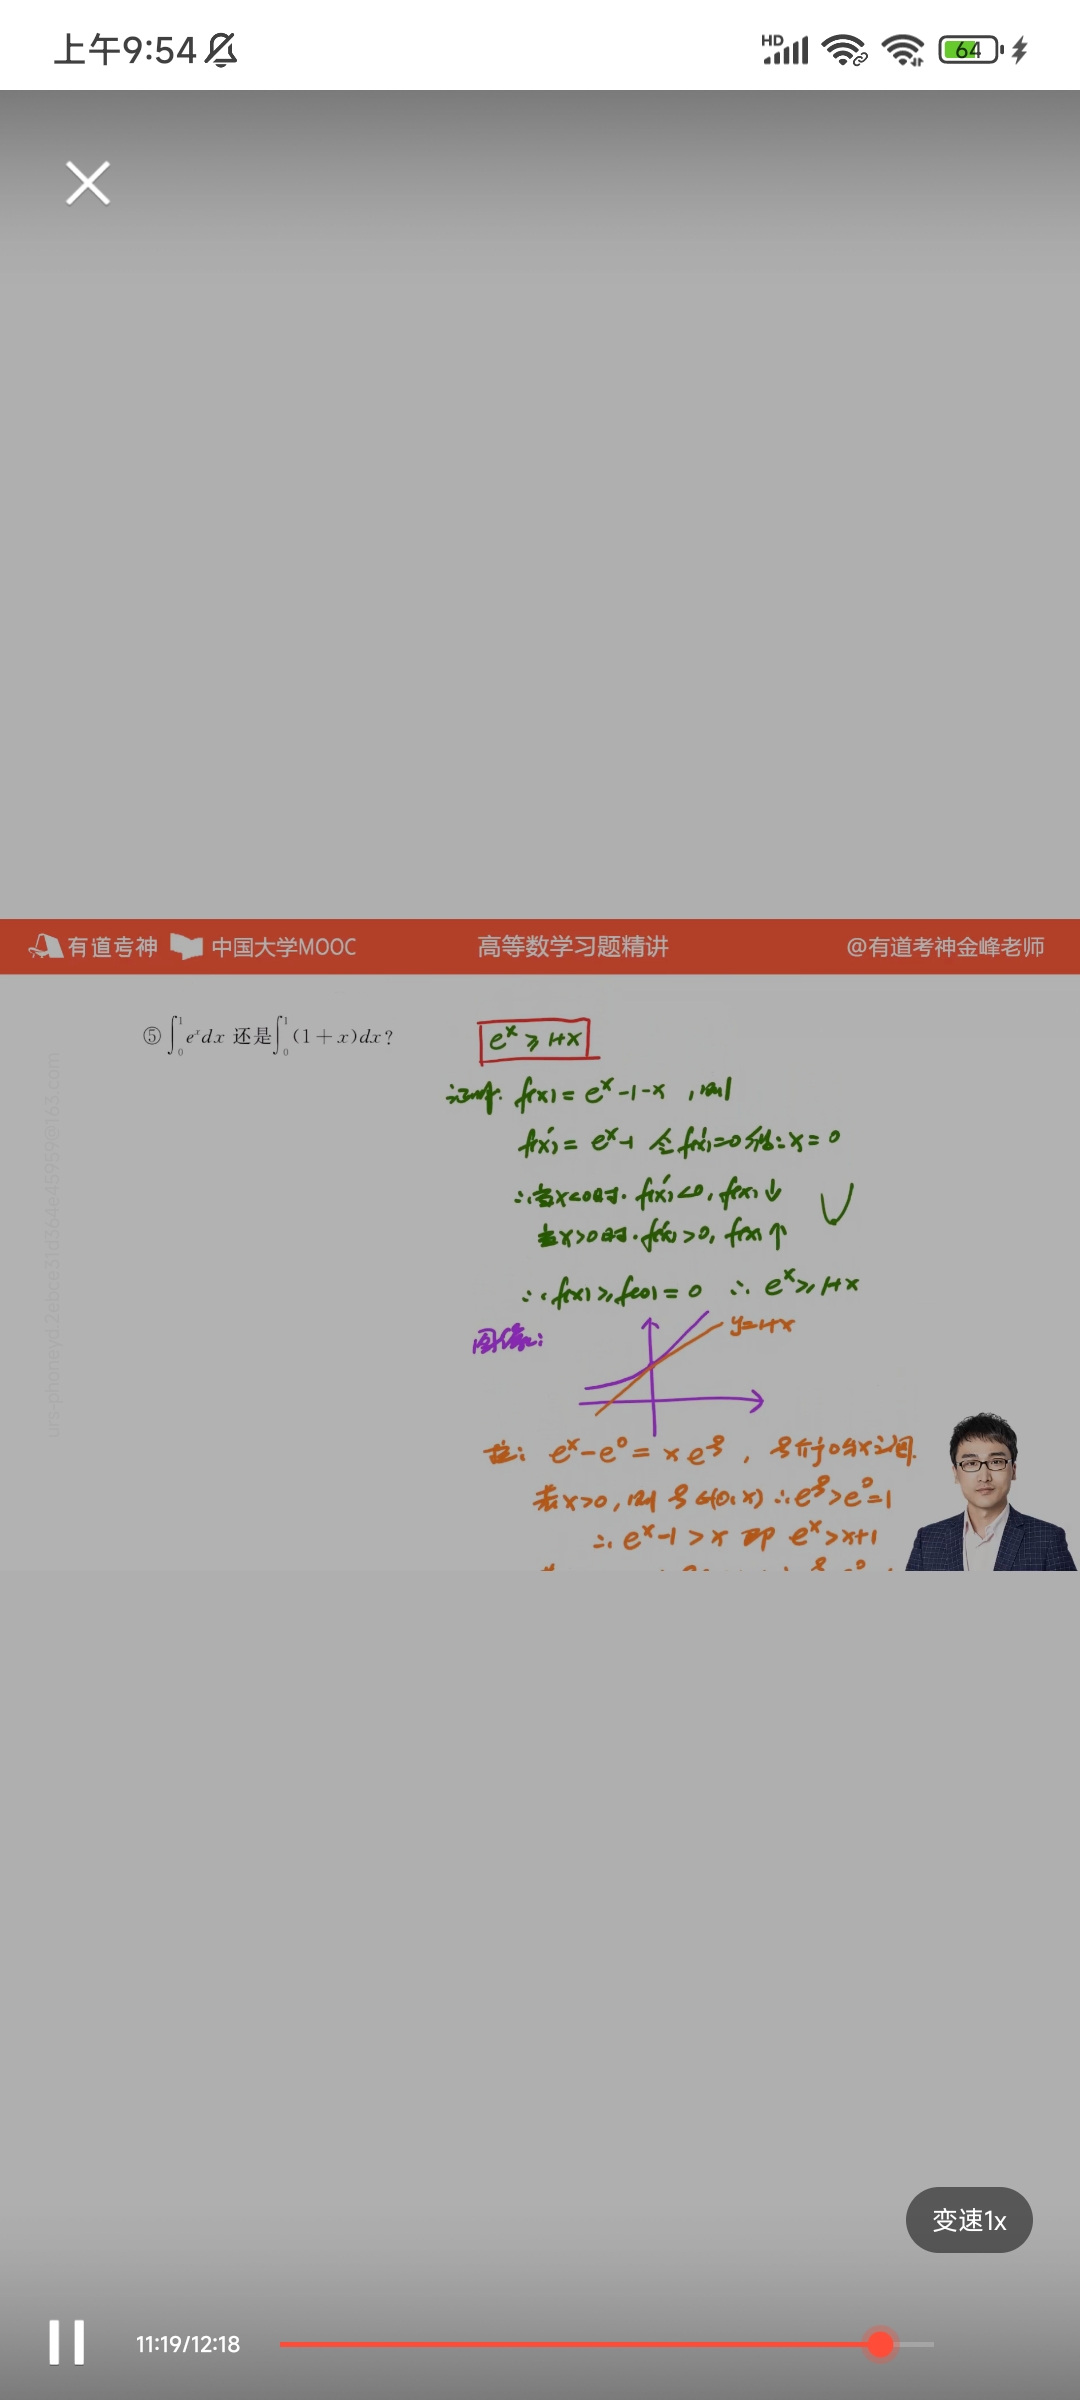 上午9:54
HD
64
有道考神 中国大学MOOC 高等数学习题精讲 @有道考神金峰老师
⑤ ∫₀¹ eˣdx 还是 ∫₀¹ (1+x)dx?
eˣ ≥ 1+x
证明: f(x) = eˣ-1-x , 则
f'(x) = eˣ-1 令 f'(x)=0 得: x = 0
∴ 当x<0时. f'(x)<0, f(x)↓
当x>0时. f'(x)>0, f(x)↑
∴ f(x)≥f(0) = 0 ∴ eˣ≥1+x
图像:
y=1+x
拉: eˣ-e⁰ = x e^ξ , ξ介于0与x之间.
若x>0, 则 ξ∈(0,x) ∴ e^ξ>e⁰=1
∴ eˣ-1 > x 即 eˣ>x+1
变速1x
11:19/12:18